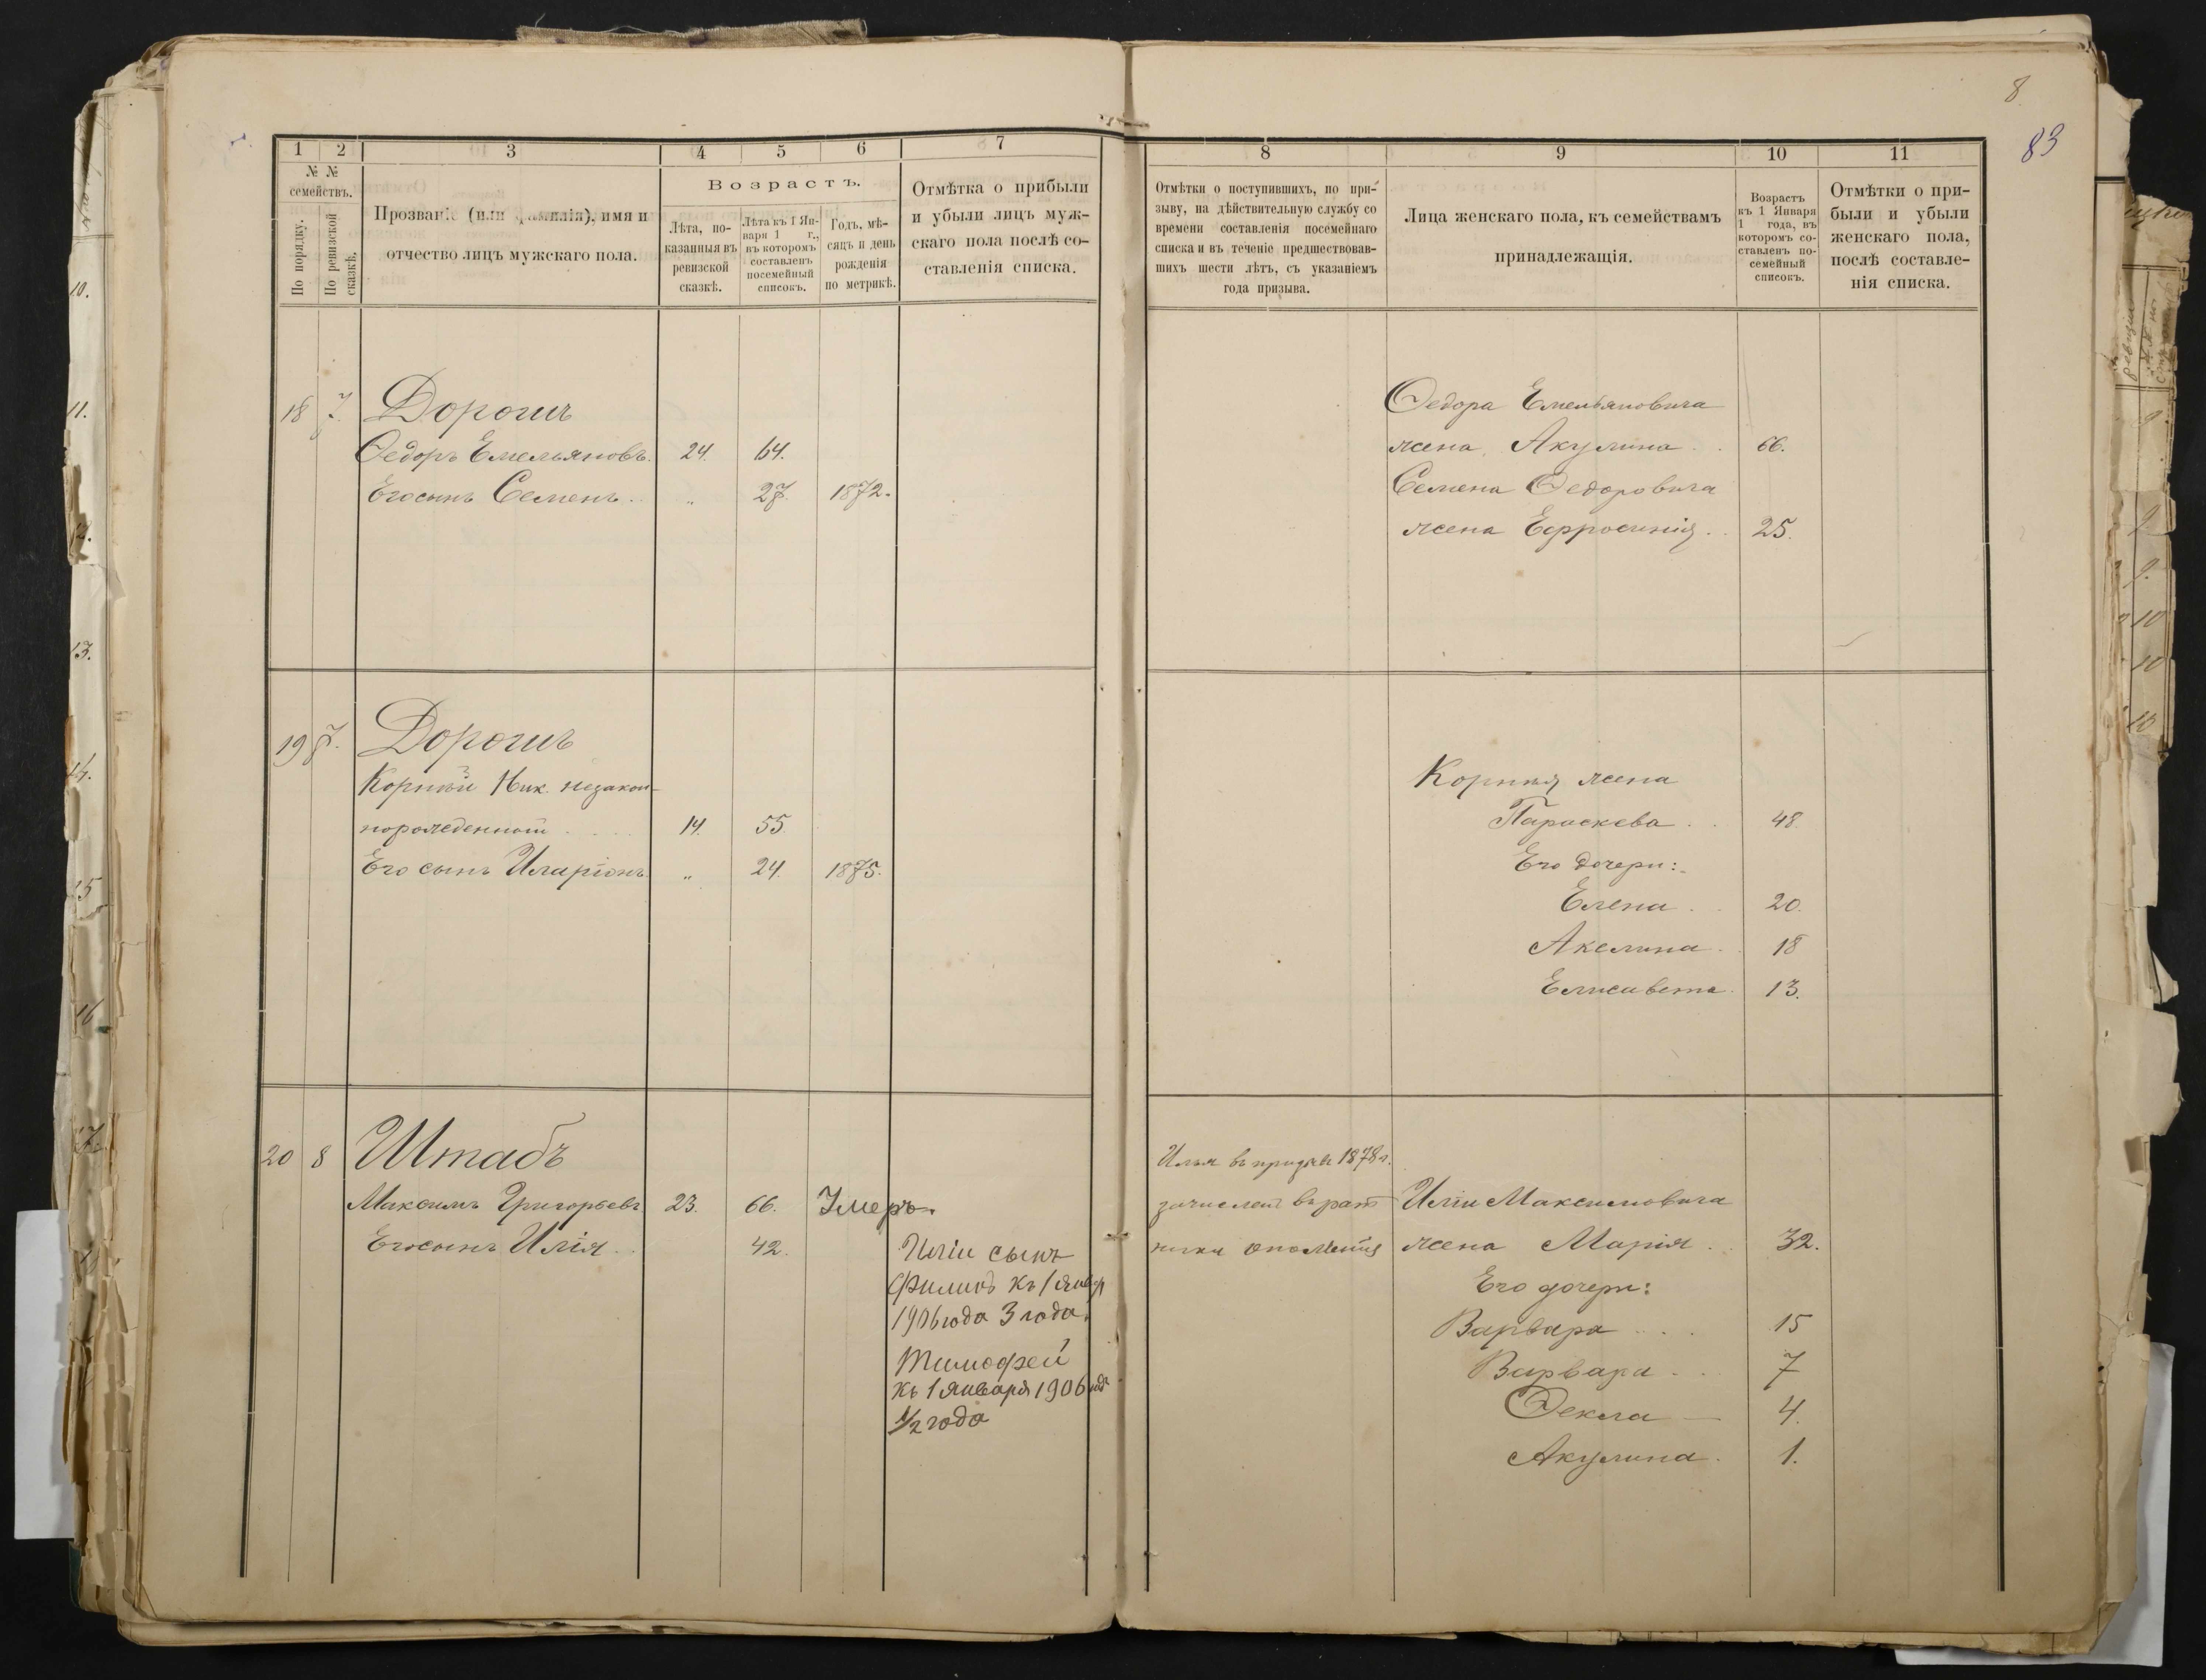 8
83
1 2 3 4 5 6 7
№ №
семействъ.
По порядку.
По ревизской сказкѣ.
Прозваніе (или фамилія), имя и
отчество лицъ мужскаго пола.
Возрастъ.
Лѣта, по-
казанныя въ
ревизской
сказкѣ.
Лѣта къ 1 Ян-
варя 1 г.,
въ которомъ
составленъ
посемейный
списокъ.
Годъ, мѣ-
сяцъ и день
рожденія
по метрикѣ.
Отмѣтка о прибыли
и убыли лицъ муж-
скаго пола послѣ со-
ставленія списка.
18 7. Дорошъ
Ѳедоръ Емельяновъ. 24. 64.
Его сынъ Семенъ .. „ 27. 1872.
19 7. Дорошъ
Корній Ник. незакон-
норожденный . . . . 14. 55.
Его сынъ Иларіонъ „ 24. 1875.
20 8 Штабъ
Максимъ Григорьевъ 23. 66. Умеръ.
Его сынъ Илія .. 42. Иліи сынъ
Филипъ къ 1 Январ
1906 года 3 года.
Тимофей
къ 1 Января 1906 года
1/2 года
8 9 10 11
Отмѣтки о поступившихъ, по при-
зыву, на дѣйствительную службу со
времени составленія посемейнаго
списка и въ теченіе предшествовав-
шихъ шести лѣтъ, съ указаніемъ
года призыва.
Лица женскаго пола, къ семействамъ
принадлежащія.
Возрастъ
къ 1 Января
1 года, въ
которомъ со-
ставленъ по-
семейный
списокъ.
Отмѣтки о при-
были и убыли
женскаго пола,
послѣ составле-
нія списка.
Ѳедора Емельяновича
жена Акулина . . 66.
Семена Ѳедоровича
жена Ефросинія . . 25.
Корнія жена
Параскева . . 48.
Его дочери:
Елена . . 20.
Акелина . . 18
Елисавета . 13.
Илья въ призывѣ 1878 г.
зачисленъ въ рат Иліи Максимовича
ники ополченія жена Марія . . 32.
Его дочери:
Варвара . . . . 15
Варвара . . . 7
Ѳекла — 4.
Акулина . 1.
10.
11.
12.
13.
14.
15
16
17.